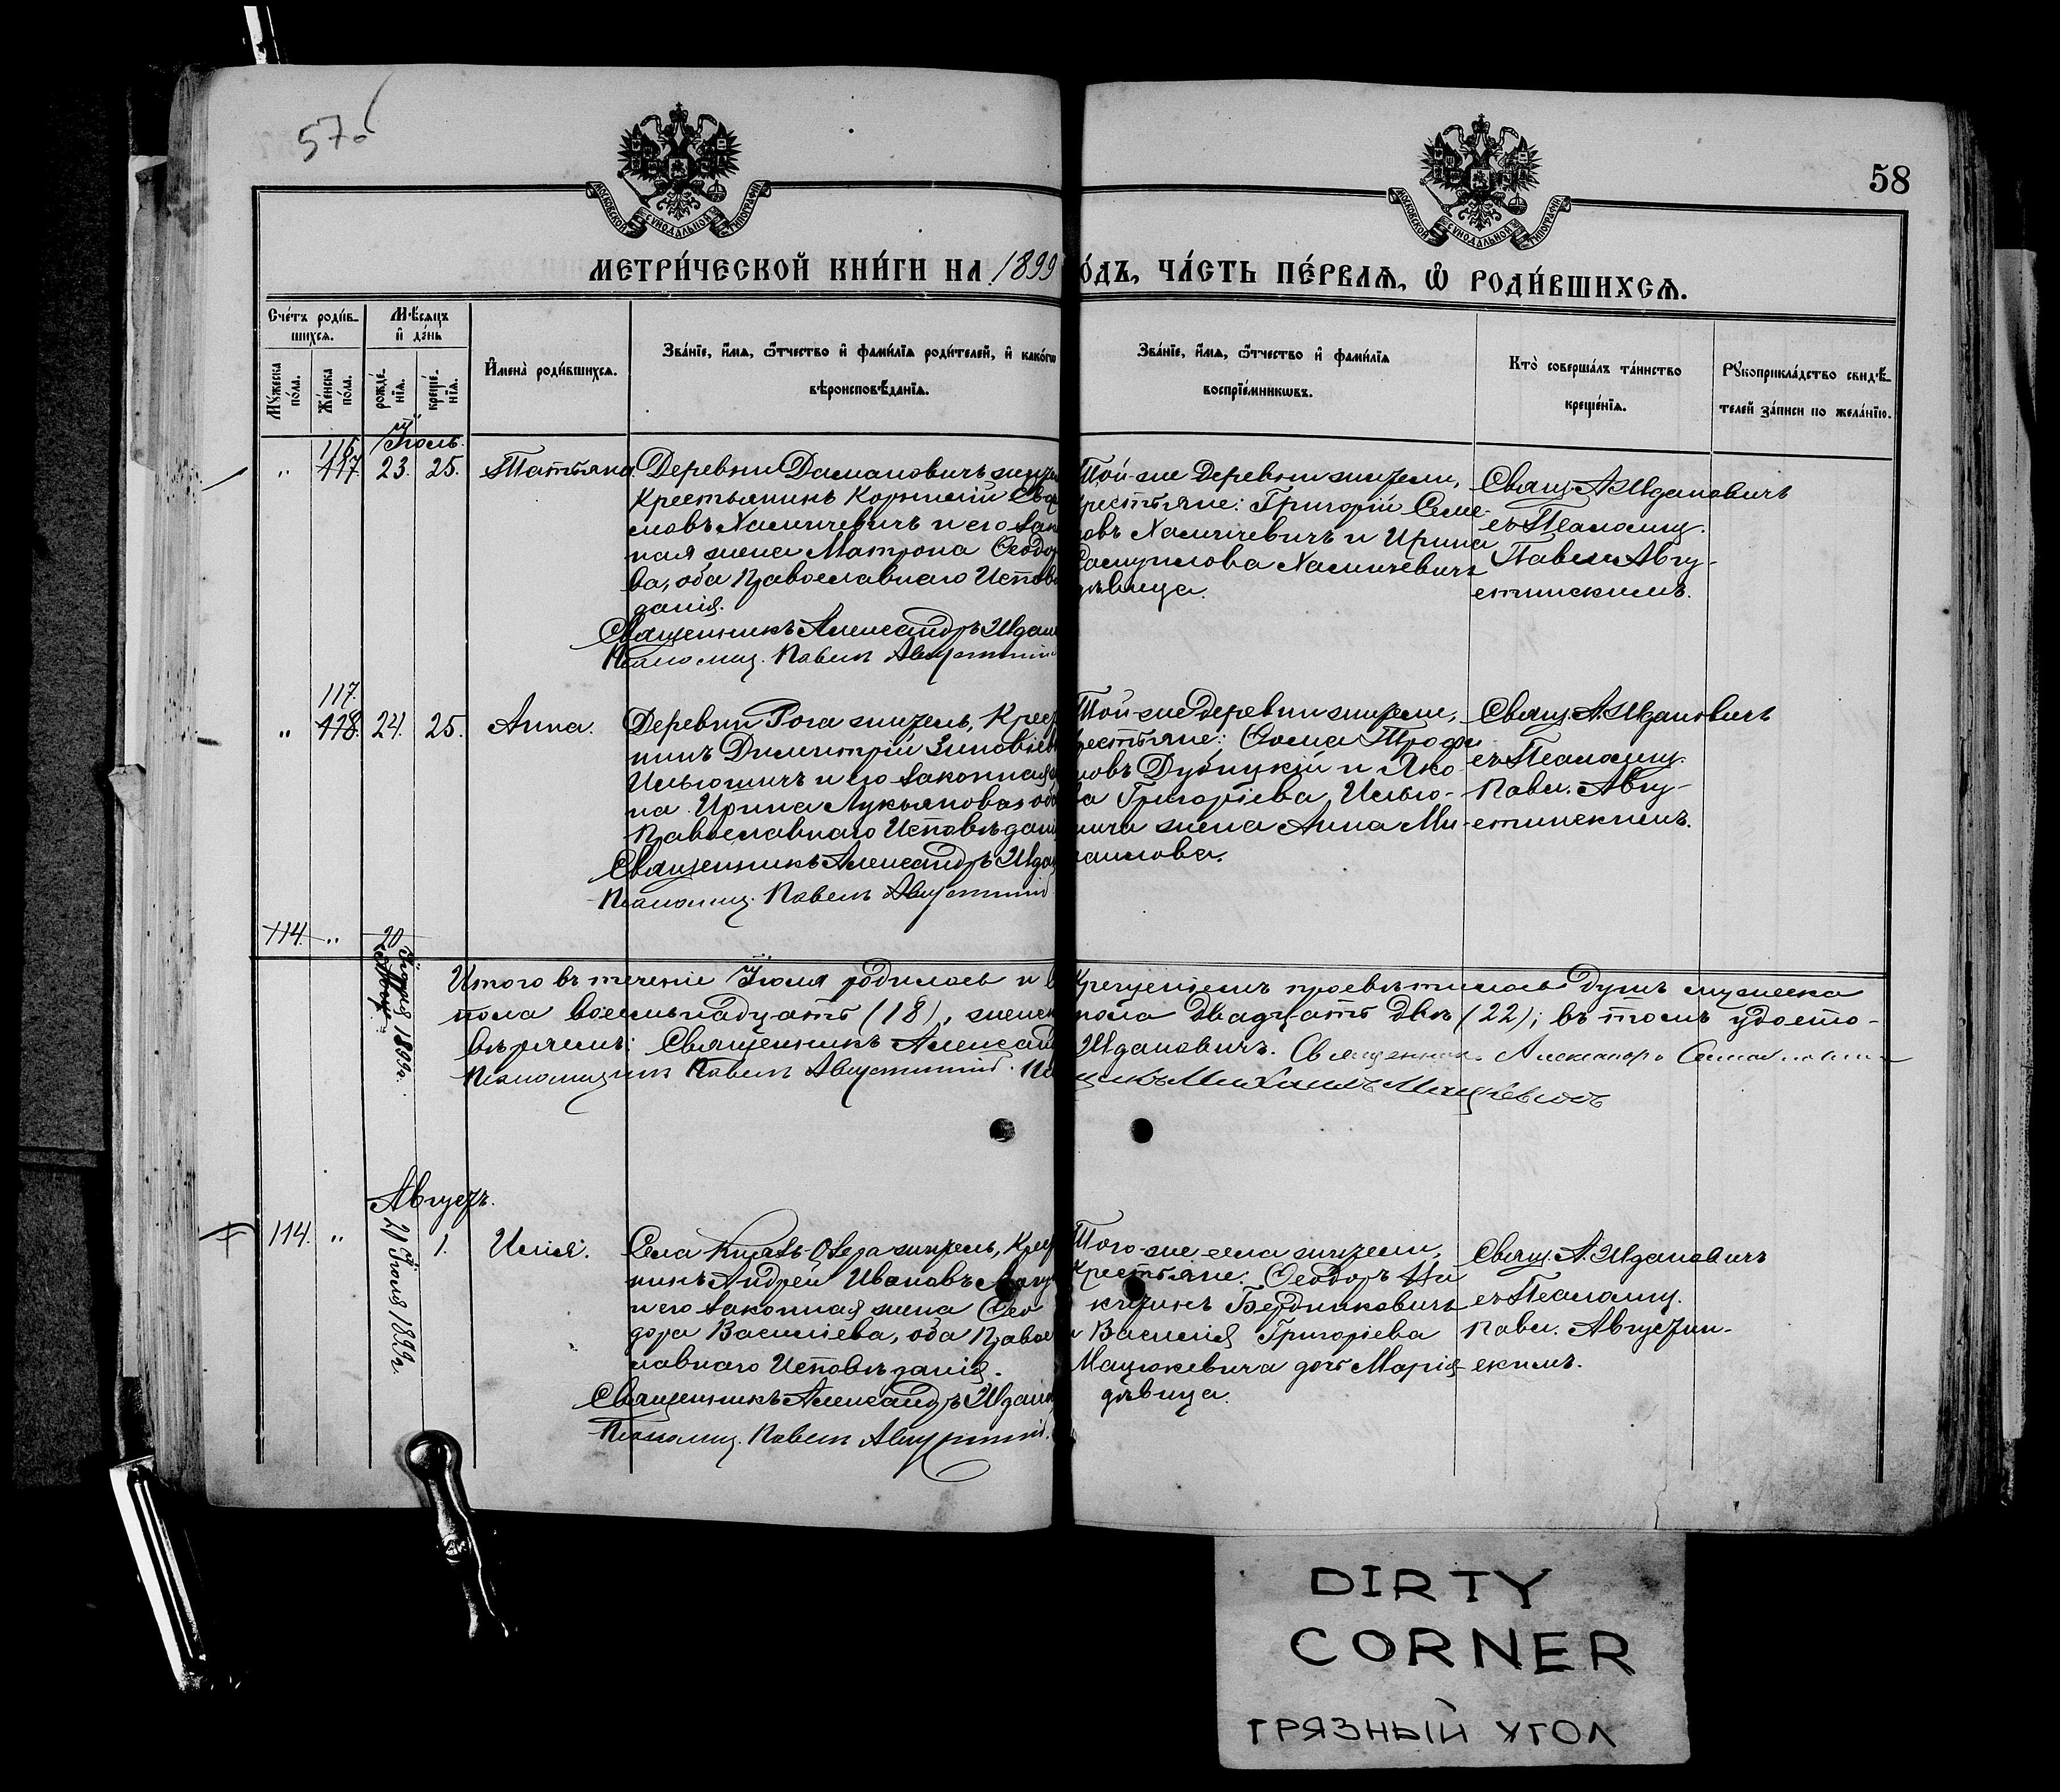 57об
58
МОСКОВСКОЙ СУНОДАЛЬНОЙ ТИПОГРАФІИ
МОСКОВСКОЙ СУНОДАЛЬНОЙ ТИПОГРАФІИ
МЕТРИ́ЧЕСКОЙ КНИ́ГИ НА 1899
О́ДЪ, ЧА́СТЬ ПЕ́РВАѦ, Ѡ҆ РОДИ́ВШИХСѦ.
Сче́тъ роди́в-
шихсѧ.
Мꙋ́жеска по́ла.
Же́нска по́ла.
Мѣ́сѧцъ
и҆ де́нь
рожде́нїѧ.
креще́нїѧ.
И҆мена̀ роди́вшихсѧ.
Зва́нїе, и҆́мѧ, ѻ҆́тчество и҆ фами́лїѧ роди́телей, и҆ како́гѡ
вѣроисповѣ́данїѧ.
Зва́нїе, и҆́мѧ, ѻ҆́тчество и҆ фами́лїѧ
воспрїе́мникѡвъ.
Кто̀ соверша́лъ та́инство
креще́нїѧ.
Рꙋкоприкла́дство свидѣ́-
телей за́писи по жела́нїю.
Іюль.
116.
" 117. 23. 25. Татьяна. Деревни Дамановичъ жите
Крестьянинъ Корнилій
мовъ Халичевичъ и его Зак
ная жена Матрона Ѳеодо
ва, оба Православнаго Испов
данія.
Священникъ Александръ Ждан
Псаломщ. Павелъ Августин
Той-же деревни жители,
рестьяне: Григорій Семе-
овъ Халичевичъ и Ирина
Самуилова Халичевичъ
дѣвица.
Свящ. А. Ждановичъ
съ Псаломщ.
Павелъ Авгу-
стинскимъ.
117.
" 118. 24. 25. Анна. Деревни Рога житель, Крес
нинъ Димитрій Зиновіев
Ильюшичъ и его Законная
на Ирина Лукьянова, об
Православнаго Исповѣдані
Священникъ Александръ Жда
Псаломщ. Павелъ Августин
Той-же деревни жители,
рестьяне: Ѳома Трофи
мовъ Дубицкій и Яко-
ва Григоріева Илью-
шича жена Анна Ми-
хаилова.
Свящ. А. Ждановичъ
съ Псаломщ.
Павл. Авгу-
стинскимъ.
114. " 20
Іюля 1899г.
Итого въ теченіе Іюля родилось и
Крещеніемъ просвѣтилось душъ мужеска
пола восемьнадцать (18), женск
пола двадцать двѣ (22); въ томъ удосто-
вѣряемъ: Священникъ Александ
Ждановичъ. Священникъ Александръ
Псаломщикъ Павелъ Августинскій. Пс
щикъ Михаилъ Мацкевичъ
Августъ.
114. " 20 Іюля 1899г. 1. Илія. Села Князь-Озера житель, Крес
нинъ Андрей Ивановъ
и его Законная жена Ѳео
дора Василіева, оба Правос
лавнаго Исповѣданія.
Священникъ Александръ Ждан
Псаломщ. Павелъ Августин
Того-же села жители,
Крестьяне: Ѳеодоръ Ни
китинъ Бердниковичъ
и Василія Григоріева
Мацукевича дочь Марія
дѣвица.
Свящ. А. Ждановичъ
съ Псаломщ.
Павл. Августин-
скимъ.
DIRTY
CORNER
ГРЯЗНЫЙ УГОЛ